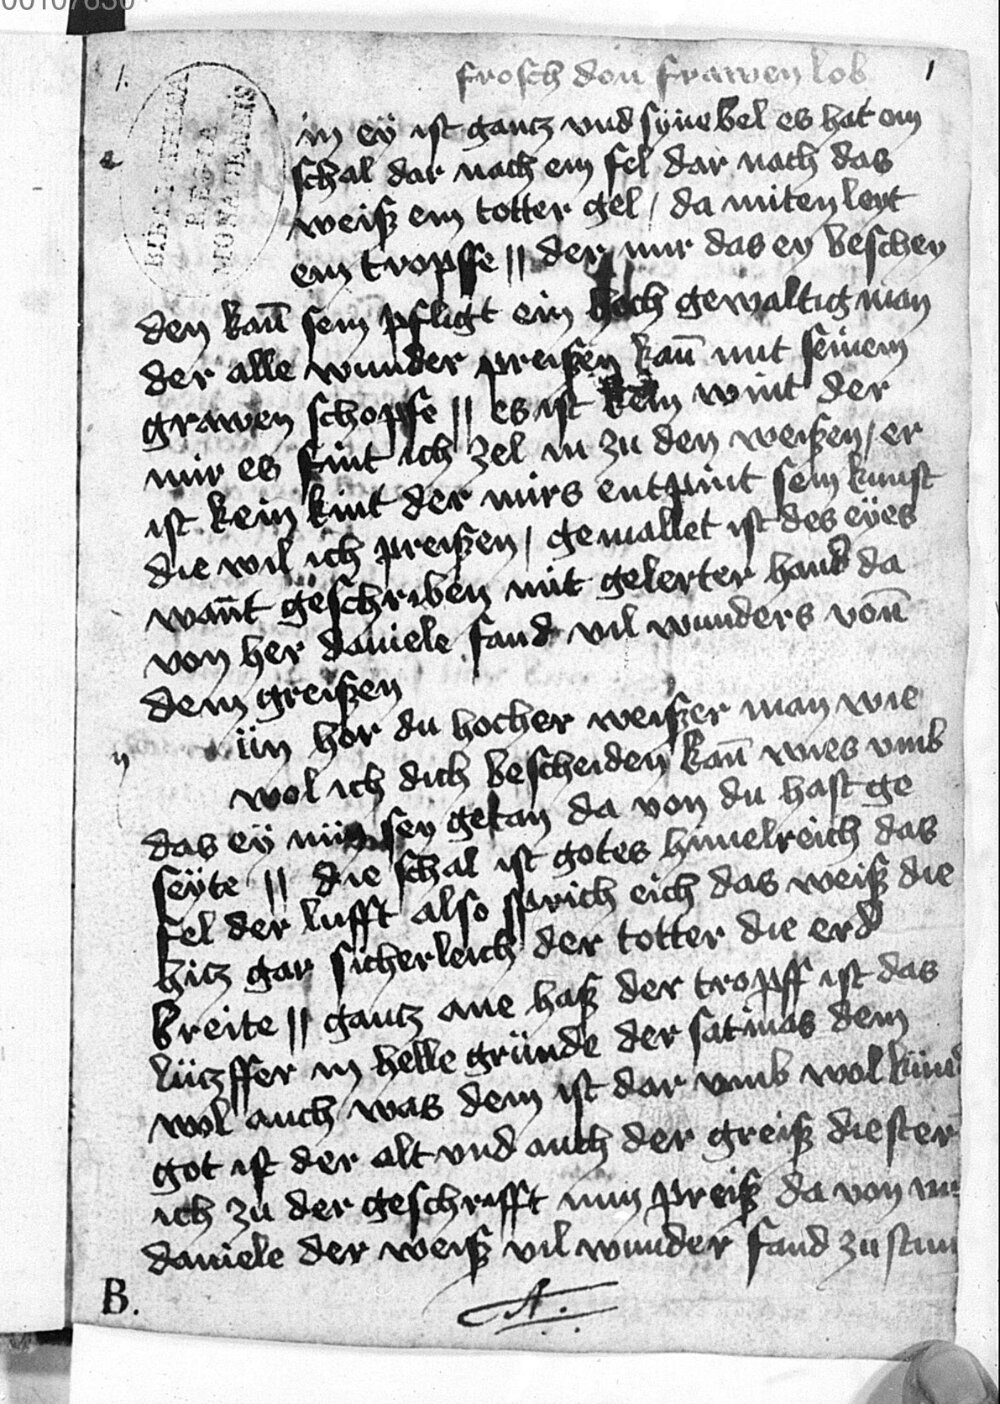 00107636
1.
frosch don frawen lob
1
e
in eÿ ist gantz vnd sÿnebel es hat ein
schal dar nach ein fel dar nach das
weiß ein totter gel / da miten leyt
ein tropffe // der mir das ey beschey
den kan̄ sein pfligt ein hoch gewaltig man
der alle wunder preißen kan̄ mit seinem
grawen schopfe // es ist kein wint der
mir es fint ich zel in zu den weißen / er
ist kein kint der mirs entpint sein kunst
die wil ich preißen / gemallet ist des eÿes
wan̄t geschriben mit gelerter hand da
von her daniele fand vil wunders von̄
dem greißen
n
ün hor du hocher weißer man wie
wol ich dich bescheiden kan̄ wies vmb
das eÿ müg sey getan da von du hast ge
seÿte // die schal ist gotes himelreich das
fel der lufft also sprich eich das weiß die
hitz gar sicherleich der totter die erd
breite // gantz ane haß der tropff ist das
lützffer in helle gründe der satinas dem
wol auch was dem ist dar vmb wol künd
got ist der alt vnd auch der greiß die ster
ich zu der geschrifft mim preiß da von
daniele der weiß vil wunder fand zu
B.
A.
BIBLIOTHECA
REGIA
MONACENSIS